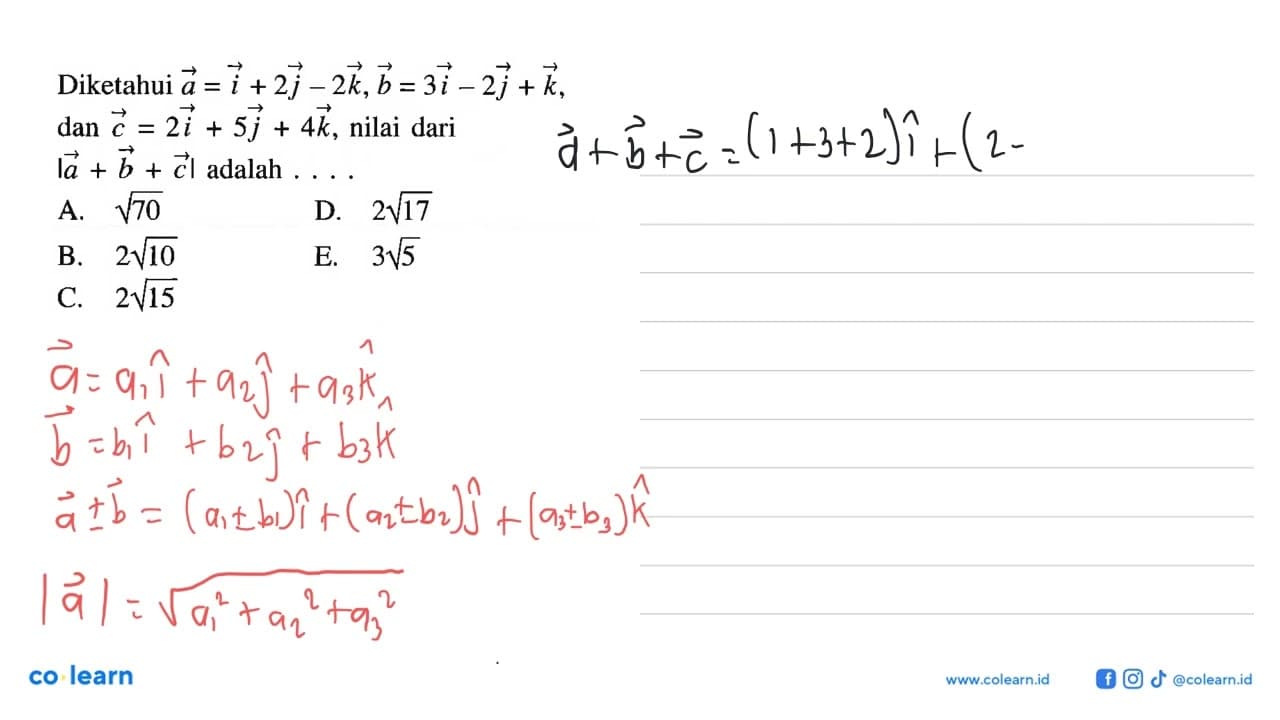 Diketahui a⃗ = i⃗ + 2j⃗ – 2k⃗, b⃗ = 3i⃗ – 2j⃗ + k⃗,
dan c⃗ = 2i⃗ + 5j⃗ + 4k⃗, nilai dari
|a⃗ + b⃗ + c⃗| adalah . . . .
A. √70 D. 2√17
B. 2√10 E. 3√5
C. 2√15
a⃗ + b⃗ + c⃗ = (1+3+2)î + (2-
a⃗ = a₁î + a₂ĵ + a₃k̂
b⃗ = b₁î + b₂ĵ + b₃k̂
a⃗ ± b⃗ = (a₁±b₁)î + (a₂±b₂)ĵ + (a₃±b₃)k̂
|a⃗| = √(a₁² + a₂² + a₃²)
co·learn
www.colearn.id @colearn.id